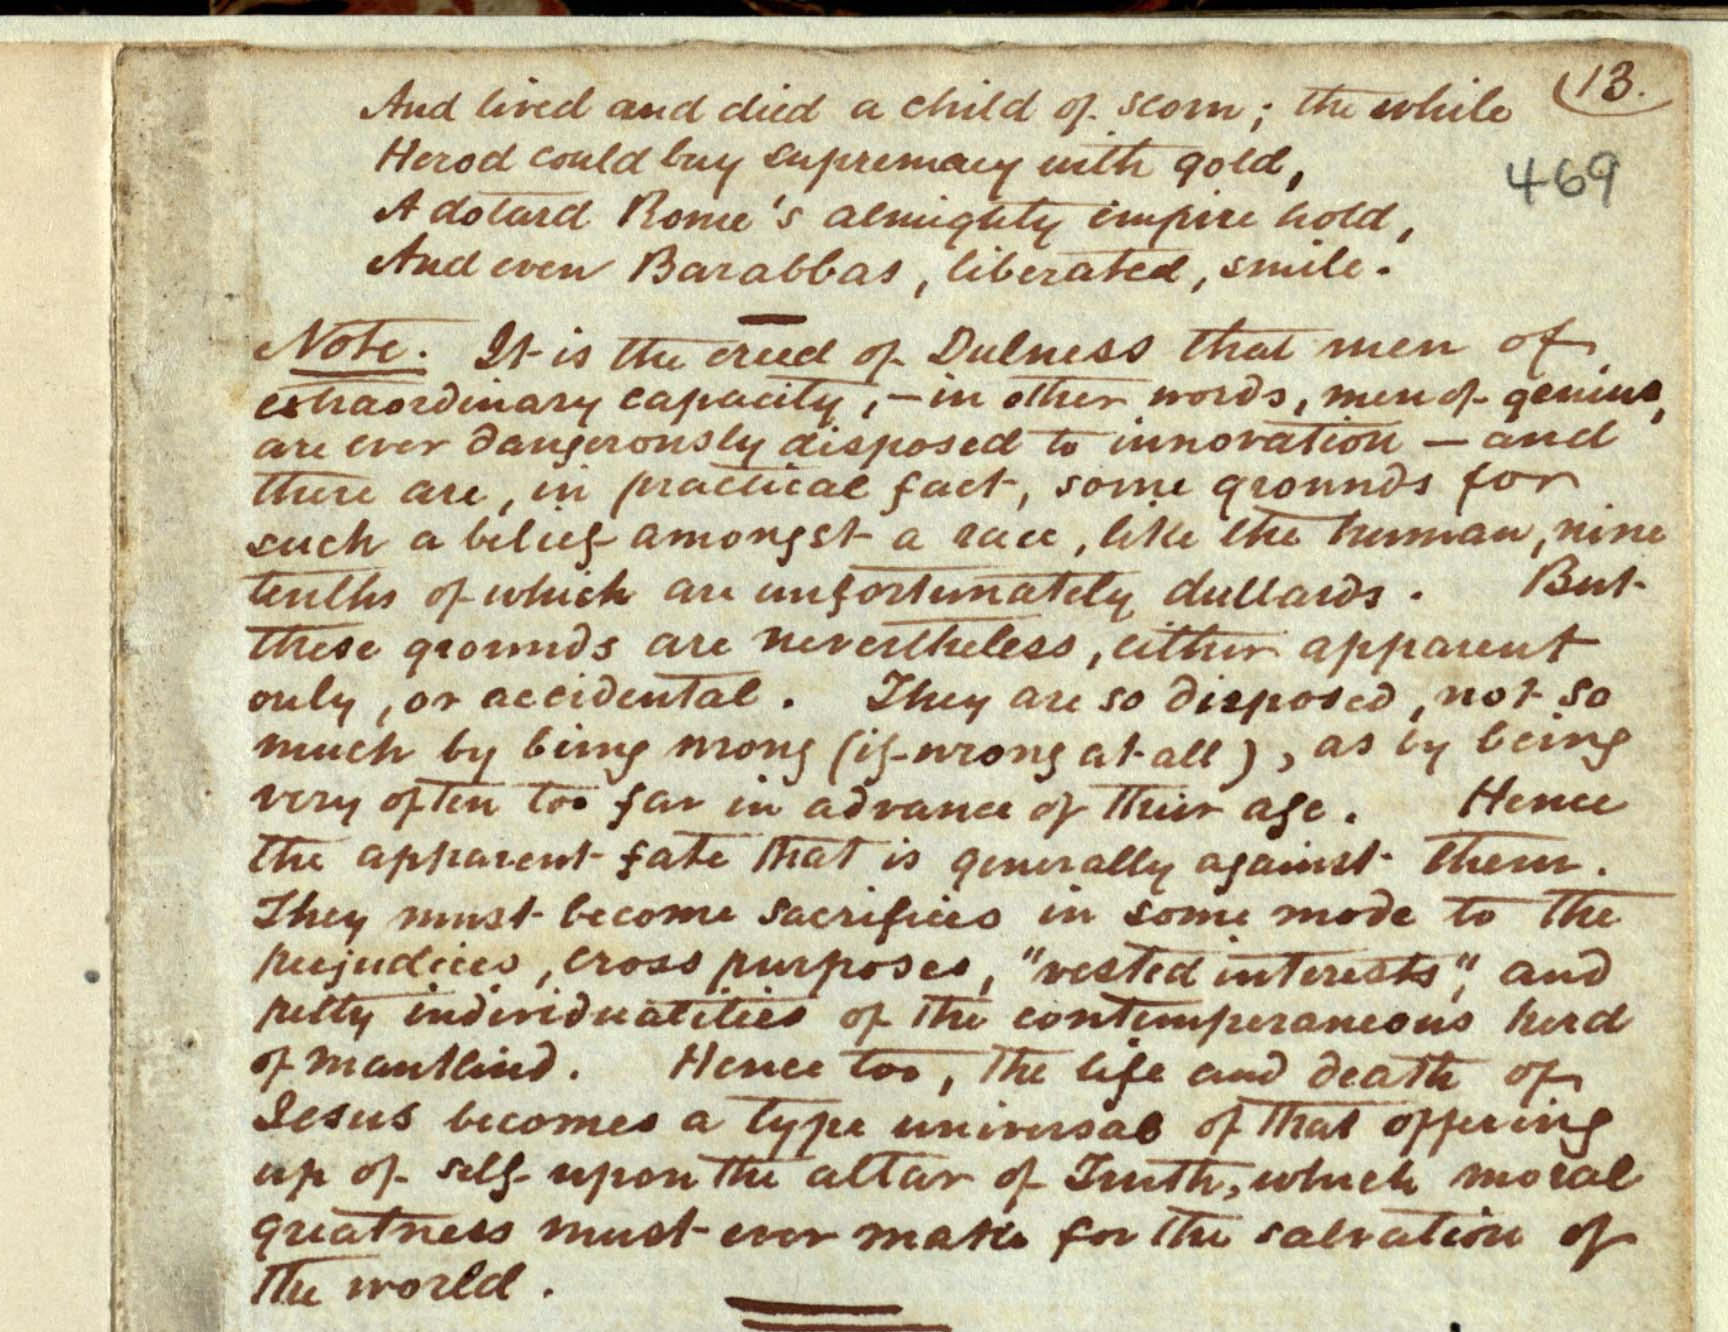 (13.
And lived and died a child of scorn; the while
469
Herod could buy supremacy with gold,
A dotard Rome's almighty empire hold,
And even Barabbas, liberated, smile.
Note. It is the creed of Dulness that men of
extraordinary capacity, – in other words, men of genius,
are ever dangerously disposed to innovation — and
there are, in practical fact, some grounds for
such a belief amongst a race, like the human, nine
tenths of which are unfortunately dullards. But
these grounds are nevertheless, either apparent
only, or accidental. They are so disposed, not so
much by being wrong (if wrong at all), as by being
very often too far in advance of their age. Hence
the apparent fate that is generally against them.
They must become sacrifices in some mode to the
prejudices, cross purposes, "vested interests", and
petty individualities of the contemperaneous herd
of mankind. Hence too, the life and death of
Jesus becomes a type universal of that offering
up of self upon the altar of Truth, which moral
greatness must ever make for the salvation of
the world.